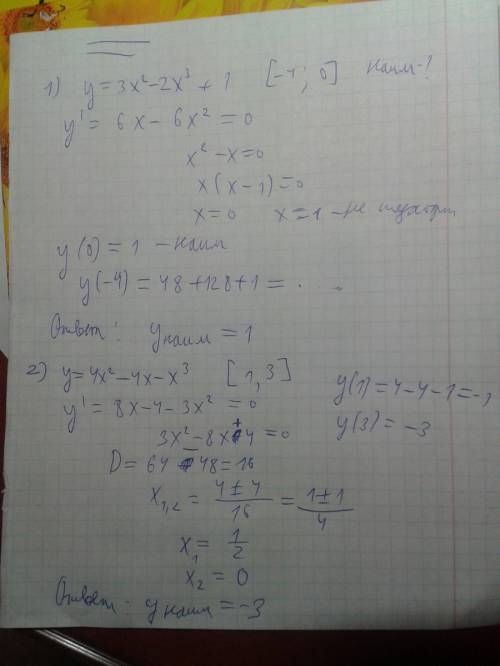 1) y = 3x² - 2x³ + 1 [-4; 0] наим-?
y' = 6x - 6x² = 0
x² - x = 0
x(x - 1) = 0
x = 0 x = 1 - не
y(0) = 1 - наим
y(-4) = 48 + 128 + 1 = . .
Ответ: y наим = 1
2) y = 4x² - 4x - x³ [1, 3]
y' = 8x - 4 - 3x² = 0
3x² - 8x + 4 = 0
D = 64 - 48 = 16
x₁,₂ = (4 ± 4)/16 = (1 ± 1)/4
x₁ = 1/2
x₂ = 0
Ответ: y наим = -3
y(1) = 4 - 4 - 1 = -1
y(3) = -3